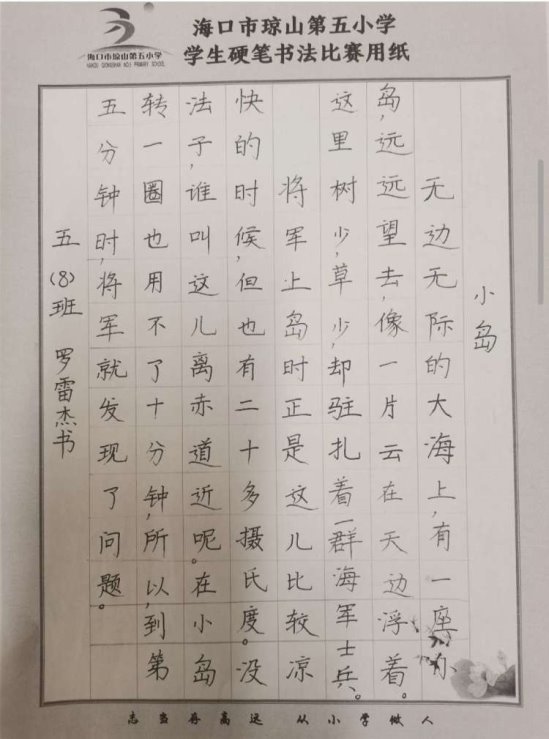 海口市琼山第五小学
HAIKOU QIONGSHAN NO.5 PRIMARY SCHOOL
海口市琼山第五小学
学生硬笔书法比赛用纸
小岛
无边无际的大海上,有一座小
岛,远远望去,像一片云在天边浮着。
这里树少,草少,却驻扎着一群海军士兵。
将军上岛时正是这儿比较凉
快的时候,但也有二十多摄氏度。没
法子,谁叫这儿离赤道近呢。在小岛
转一圈也用不了十分钟,所以,到第
五分钟时,将军就发现了问题。
五(8)班 罗雷杰书
志当存高远 从小学做人